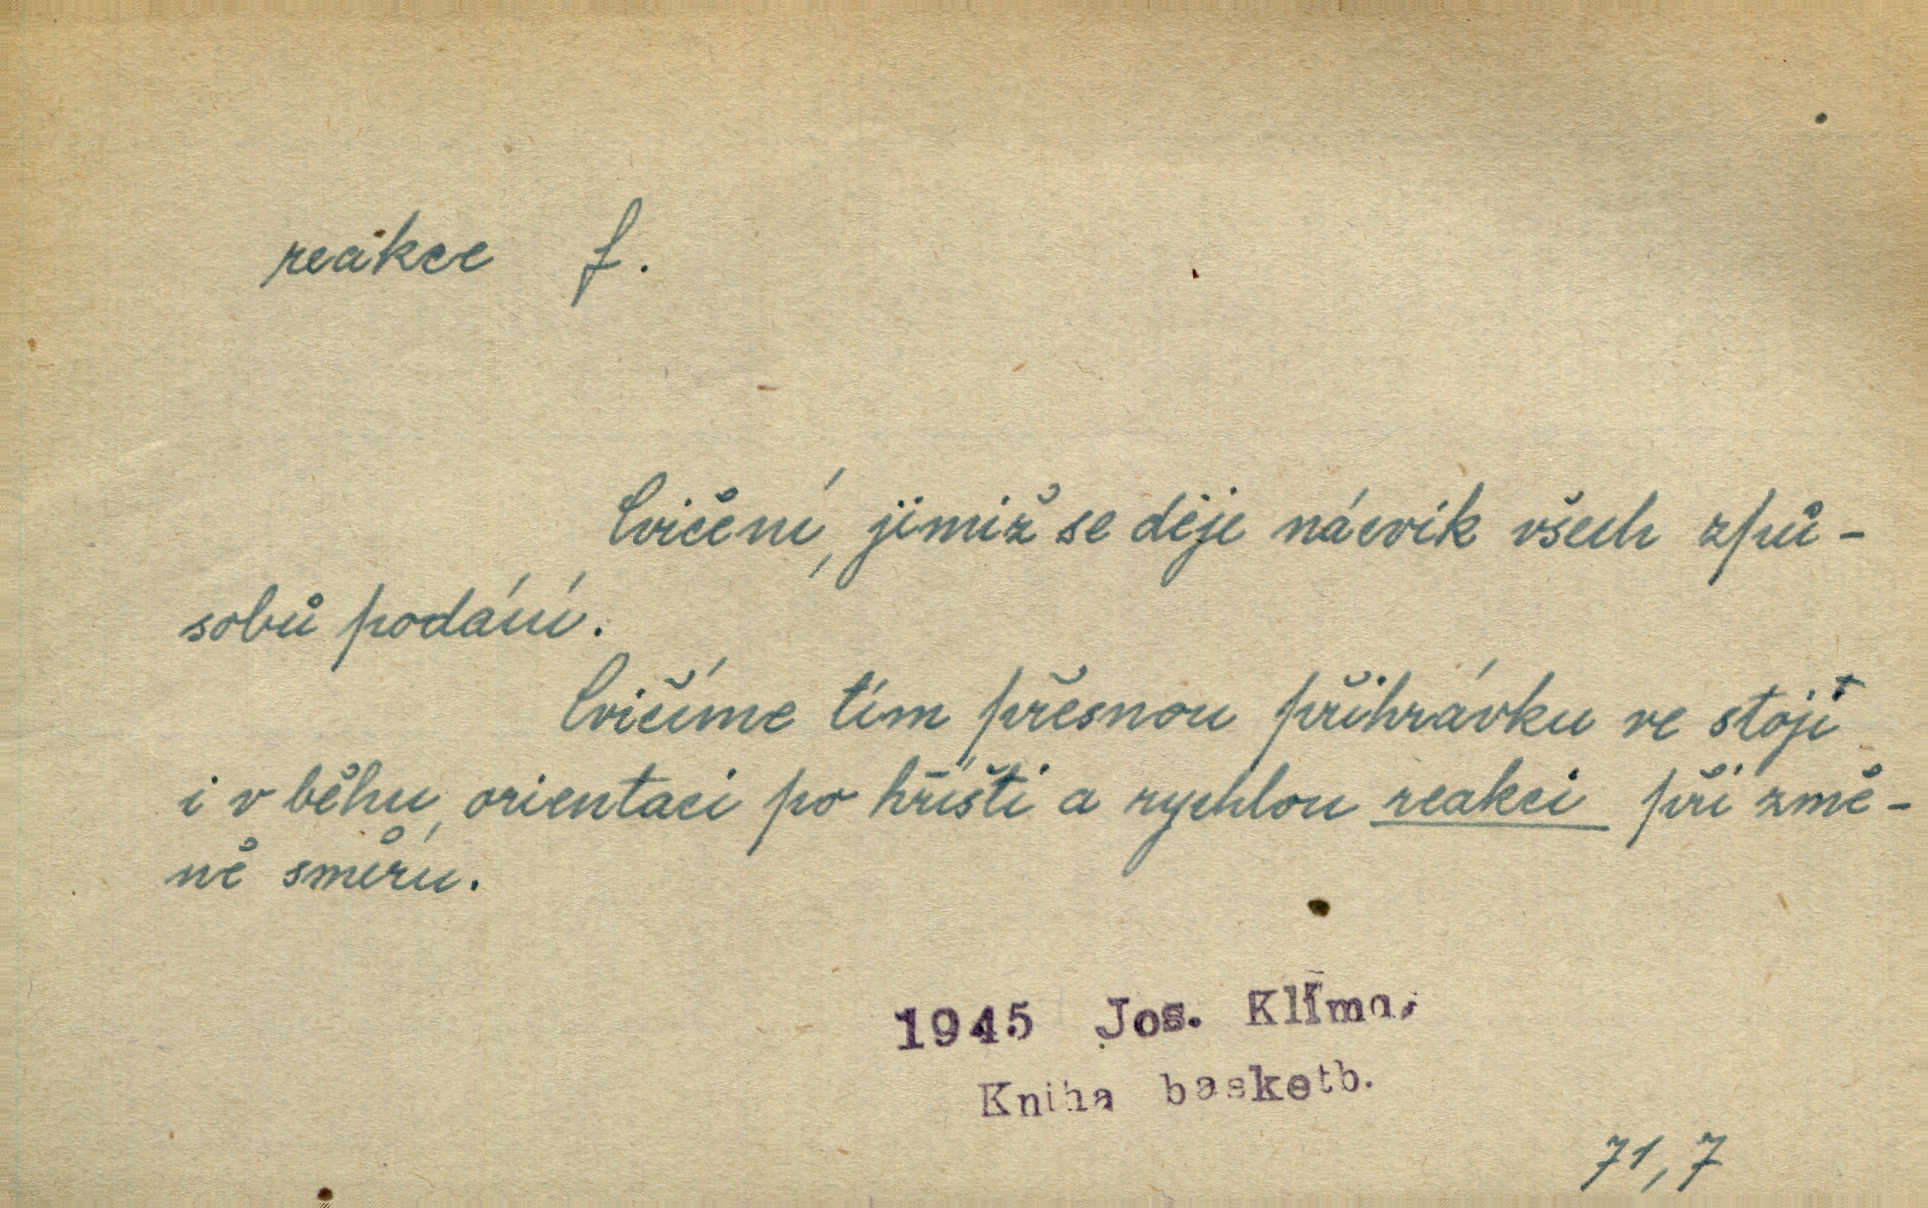 reakce f.
Cvičení, jimiž se děje nácvik všech způ-
sobů podání.
Cvičíme tím přesnou přihrávku ve stoji
i v běhu, orientaci po hřišti a rychlou reakci při změ-
ně směru.
1945 Jos. Klíma,
Kniha basketb.
71,7